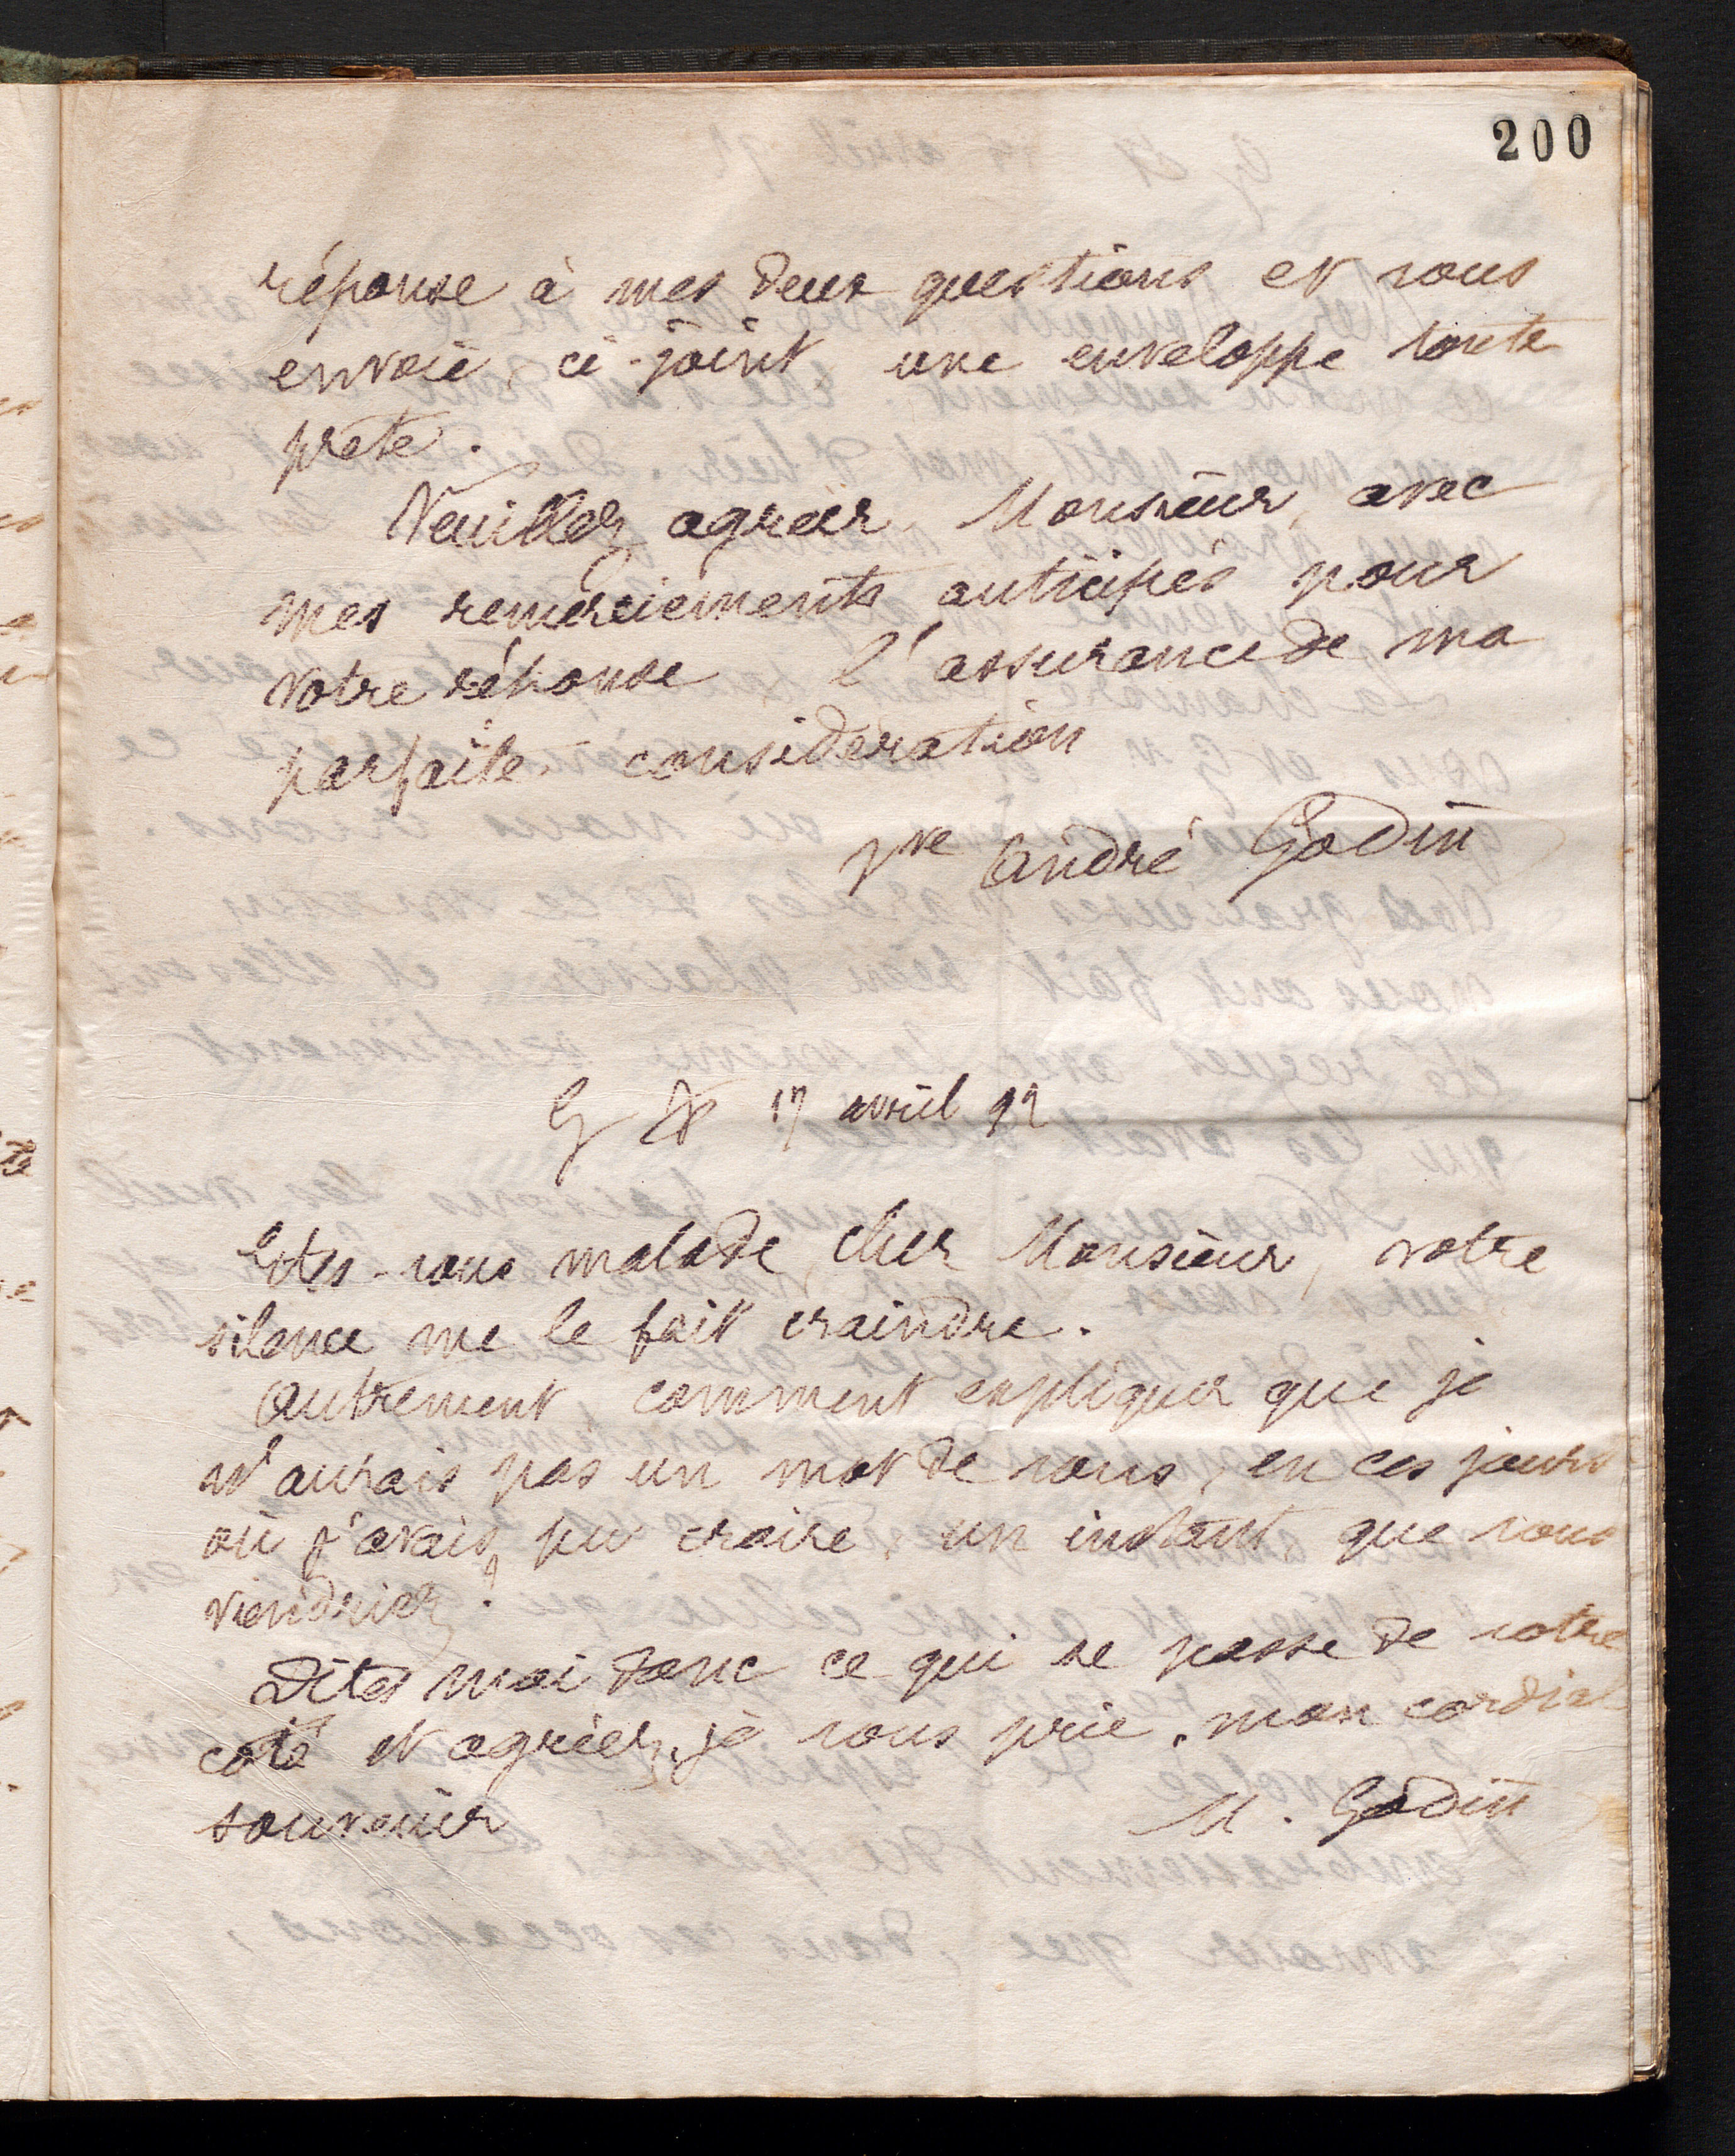 200
réponse à mes deux questions et vous
envoie, ci-joint, une enveloppe toute
prête.
Veuillez agréer, Monsieur, avec
mes remerciements anticipés pour
votre réponse l'assurance de ma
parfaite considération
Vve André Godin
17 avril 92
Etes-vous malade, cher Monsieur, votre
silence me le fait craindre.
Autrement comment expliquer que je
n'aurais pas un mot de vous, en ces jours
où j'avais pu croire, un instant, que vous
viendriez?
Dites moi donc ce qui se passe de votre
côté et agréez, je vous prie, mon cordial
souvenir
M. Godin